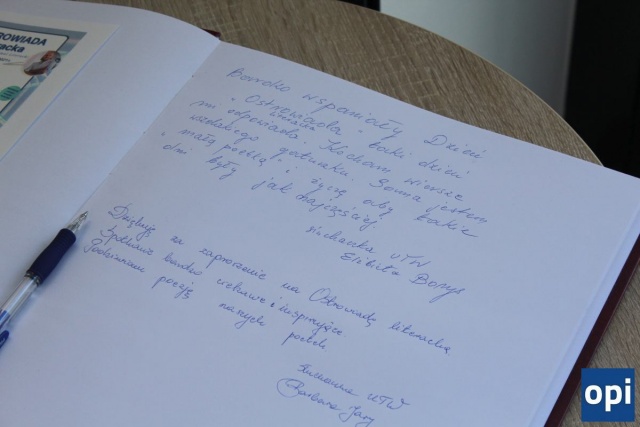 OWIADA
acka
Bardzo wspaniały Dzień
"Ostrowiada" taki dzień
mi odpowiada. Kocham wiersze
literacka
wszelakiego gatunku. Sama jestem
"małą poetką" i życzę aby takie
dni były jak najczęściej
słuchaczka UTW
Elżbieta Borys
Dziękuję za zaproszenie na Ostrowiadę literacką
Spotkanie bardzo ciekawe i inspirujące.
Podziwiam poezję naszych poetek
Słuchaczka UTW
Barbara
opi